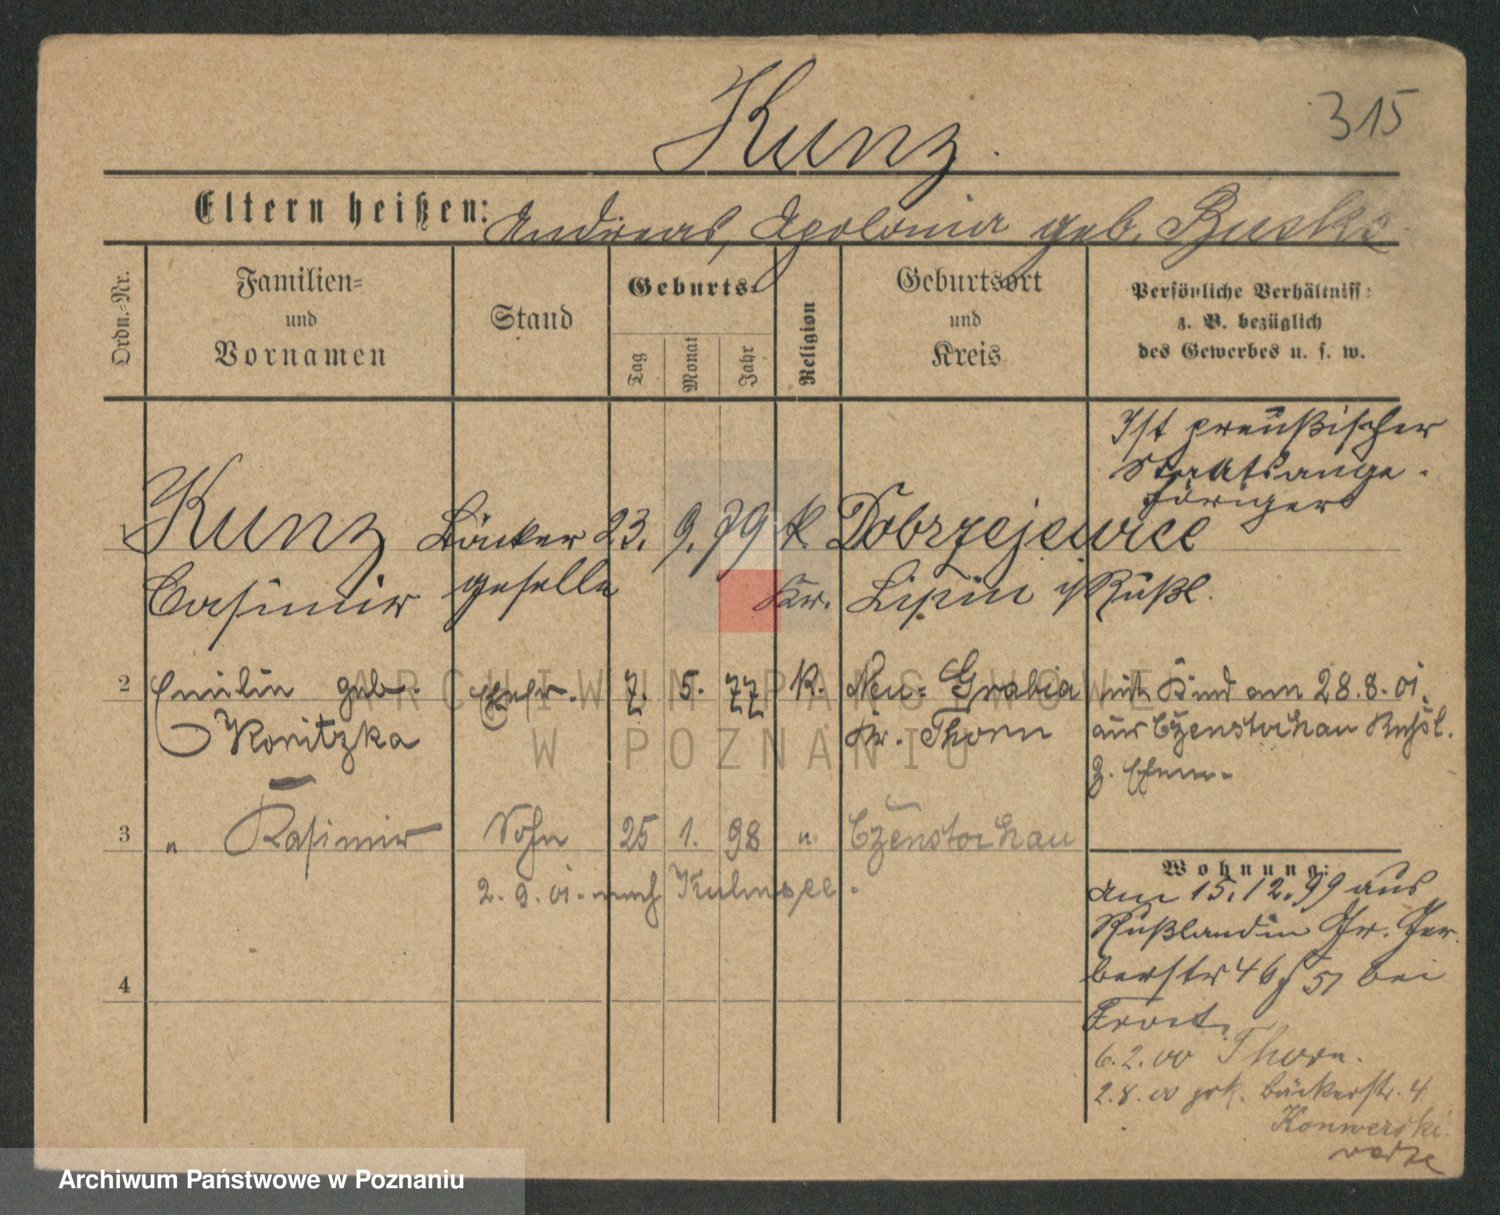 315
Kunz.
Eltern heißen: Andreas, Apolonia geb. Buske
Ordn.-Nr.
Familien-
und
Vornamen
Stand
Geburts-
Tag
Monat
Jahr
Religion
Geburtsort
und
Kreis
Persönliche Verhältniss
z. B. bezüglich
des Gewerbes u. s. w.
Ist preußischer
Staatsange-
höriger
Kunz Bäcker 23. 9. 79 k. Dobrzejewice
Casimir geselle Kr. Lipin i/Rußl.
2 Emilie geb. Ehefr. 7. 5. 77 k. Neu-Grabia mit Kind am 28.8.01.
Konitzka Kr. Thorn aus Czenstochau Russl.
z. Ehem.
3 " Kasimir Sohn 25 1. 98 " Czenstochau
2. 9. 01. nach Kulmsee.
4
Wohnung:
Am 15.12.99 aus
Rußland in Gr. Ger-
berstr 46 51 bei
6.2.00 Thorn.
2.8.00 zrk. Bäckerstr. 4
Konwerski
ARCHIWUM PAŃSTWOWE
W POZNANIU
Archiwum Państwowe w Poznaniu